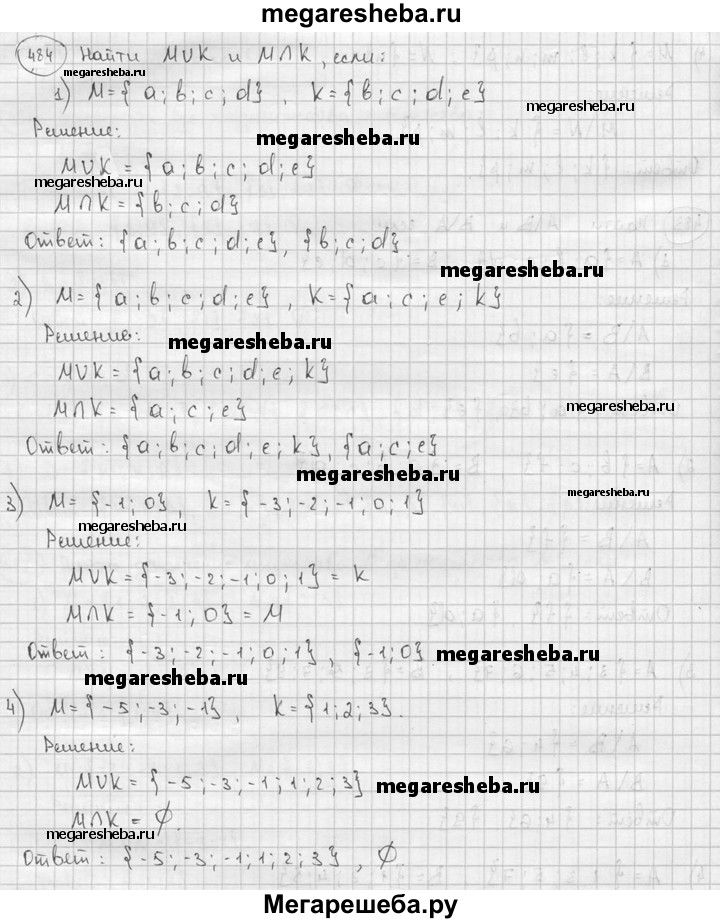 megaresheba.ru
484 Найти M∪K и M∩K, если:
megaresheba.ru
1) M={a; b; c; d}, K={b; c; d; e}
megaresheba.ru
Решение:
megaresheba.ru
M∪K = {a; b; c; d; e}
megaresheba.ru
M∩K = {b; c; d}
Ответ: {a; b; c; d; e}, {b; c; d}
megaresheba.ru
2) M={a; b; c; d; e}, K={a; c; e; k}
Решение:
megaresheba.ru
M∪K = {a; b; c; d; e; k}
M∩K = {a; c; e}
megaresheba.ru
Ответ: {a; b; c; d; e; k}, {a; c; e}
megaresheba.ru
3) M={-1; 0}, K={-3; -2; -1; 0; 1}
megaresheba.ru
megaresheba.ru
Решение:
M∪K = {-3; -2; -1; 0; 1} = K
M∩K = {-1; 0} = M
Ответ: {-3; -2; -1; 0; 1}, {-1; 0}
megaresheba.ru
megaresheba.ru
4) M={-5; -3; -1}, K={1; 2; 3}.
Решение:
M∪K = {-5; -3; -1; 1; 2; 3}
megaresheba.ru
M∩K = ∅.
megaresheba.ru
Ответ: {-5; -3; -1; 1; 2; 3}, ∅.
Мегарешеба.ру